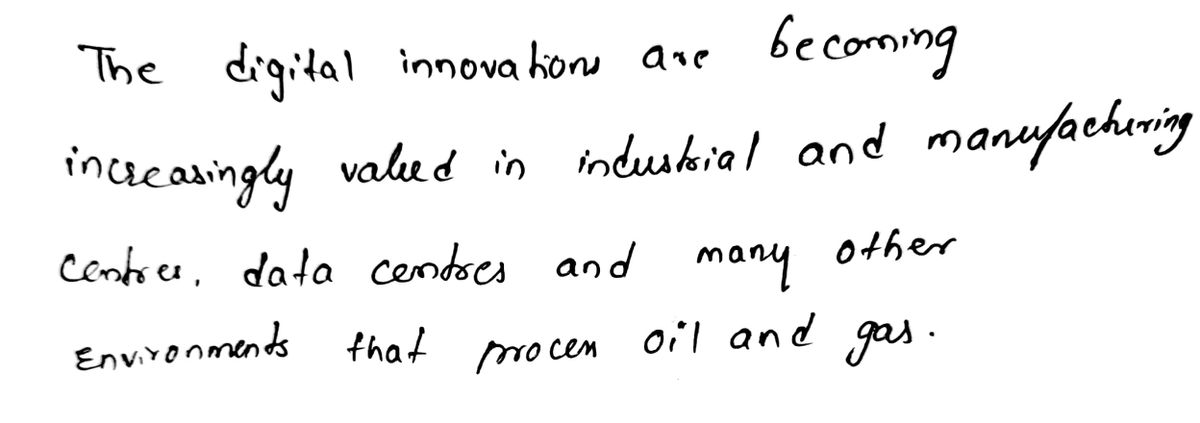 The digital innovations are becoming
increasingly valued in industrial and manufacturing
centres, data centres and many other
Environments that process oil and gas.